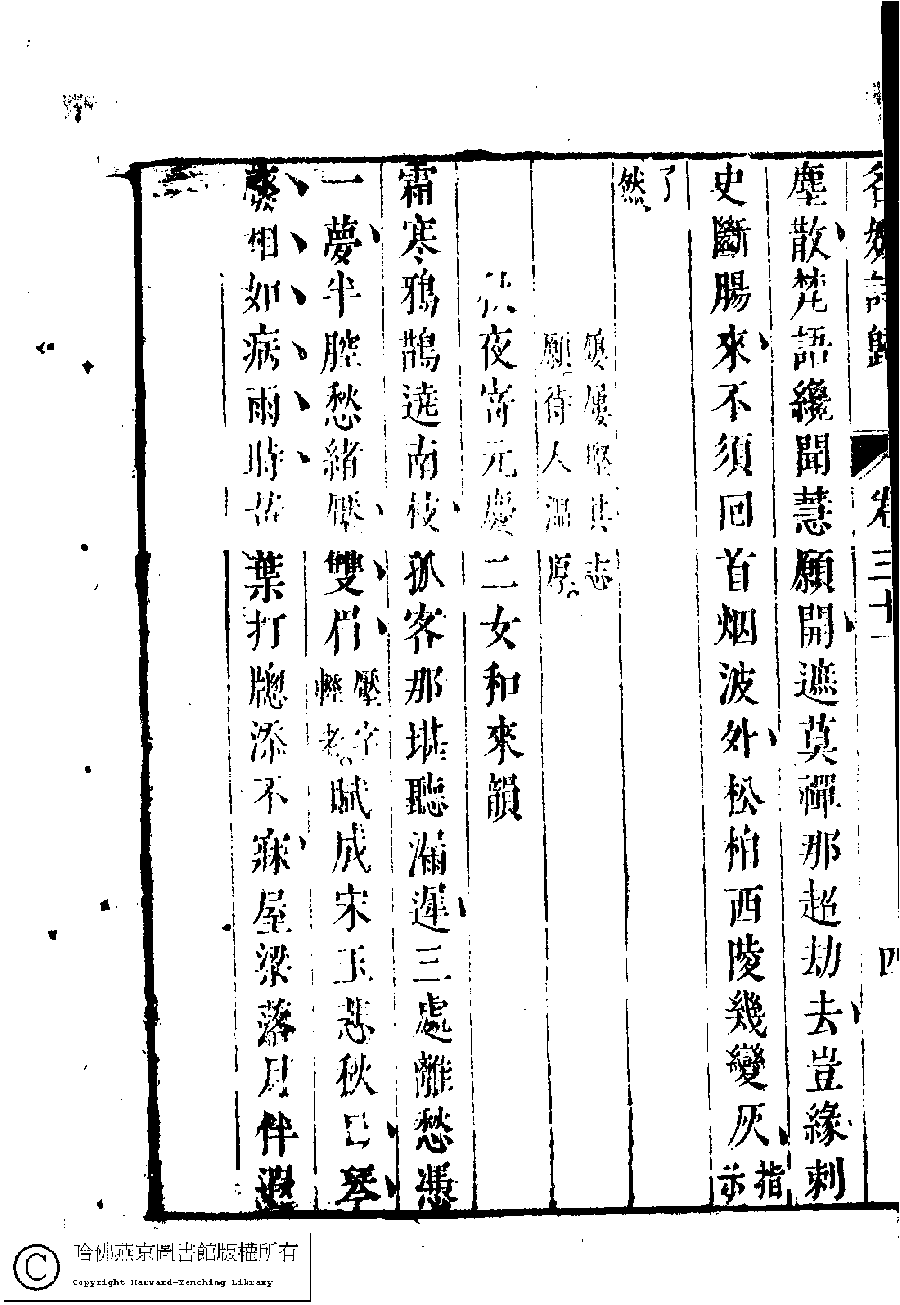 名媛詩歸 卷三十一 四
塵散梵語纔聞慧願開遮莫禪那超劫去豈緣刺
史斷腸來不須回首烟波外松柏西陵幾變灰指示
了然
屢屢堅其志
願待人溫厚
秋夜寄元慶二女和來韻
霜寒鴉鵲遶南枝孤客那堪聽漏遲三處離愁憑
一夢半腔愁緒壓雙眉壓字輕老賦成宋玉悲秋日琴
奏相如病雨時苦葉打牕添不寐屋梁落月伴
哈佛燕京圖書館版權所有
Copyright Harvard-Yenching Library